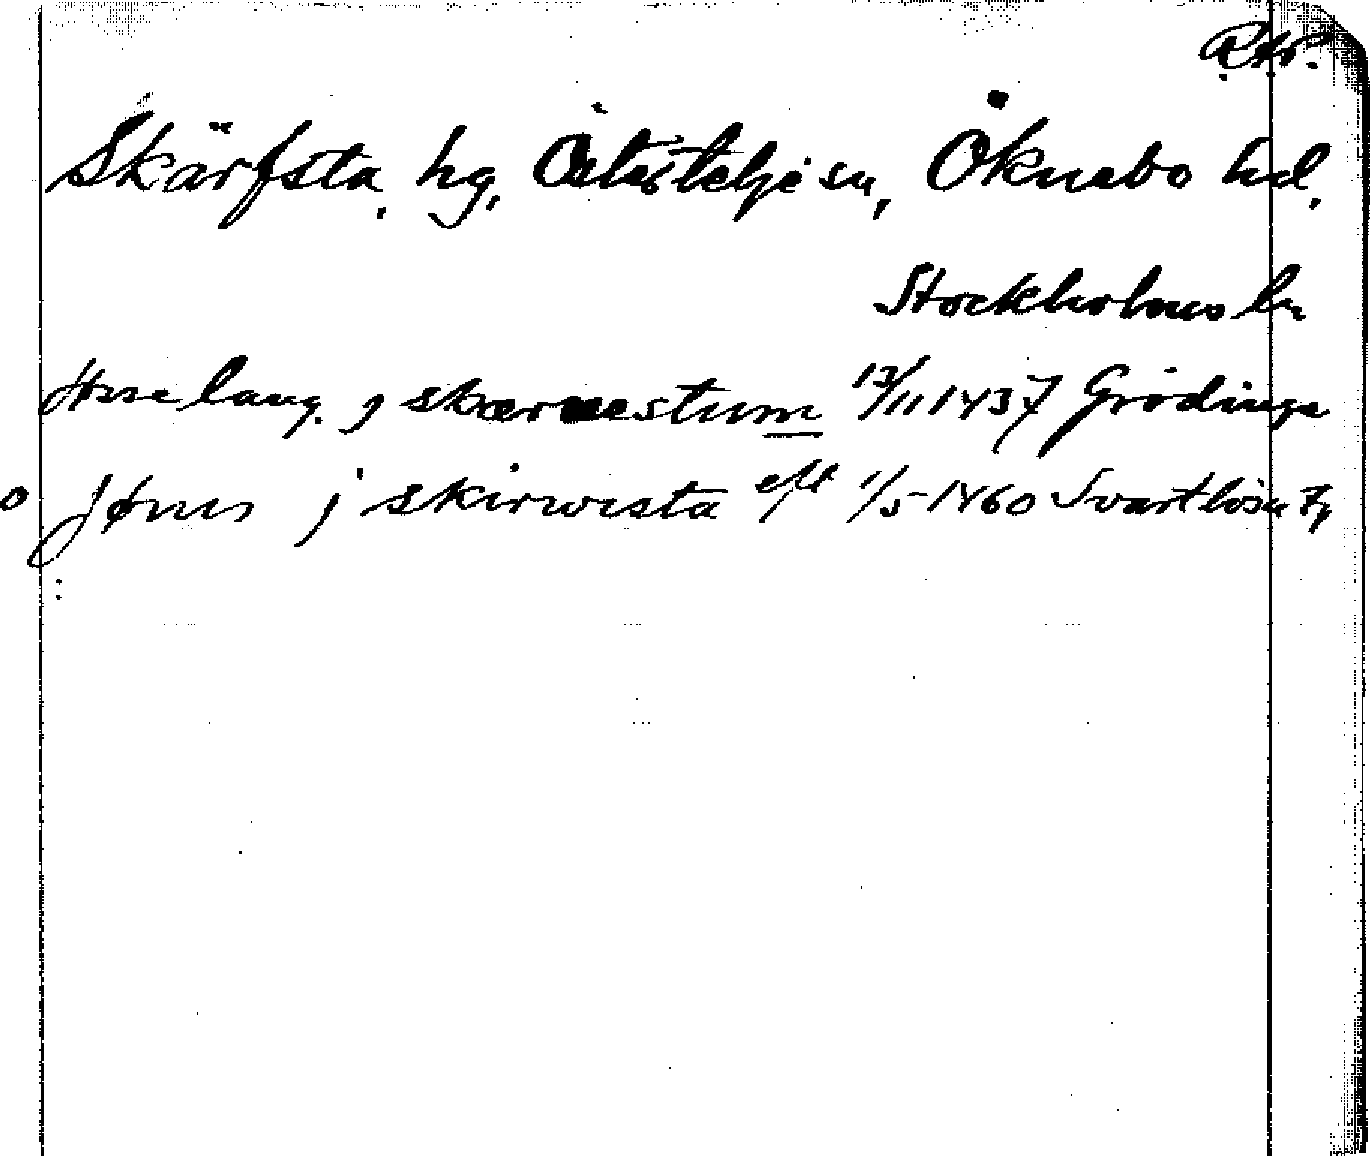 Skärfsta, hg, Östertelje sn, Öknebo hd,
Stockholms ln
lang. j skærwestum 13/11 1437 Grödinge
o Jønus j skirwista eft 1/5 1460 Svartlösa